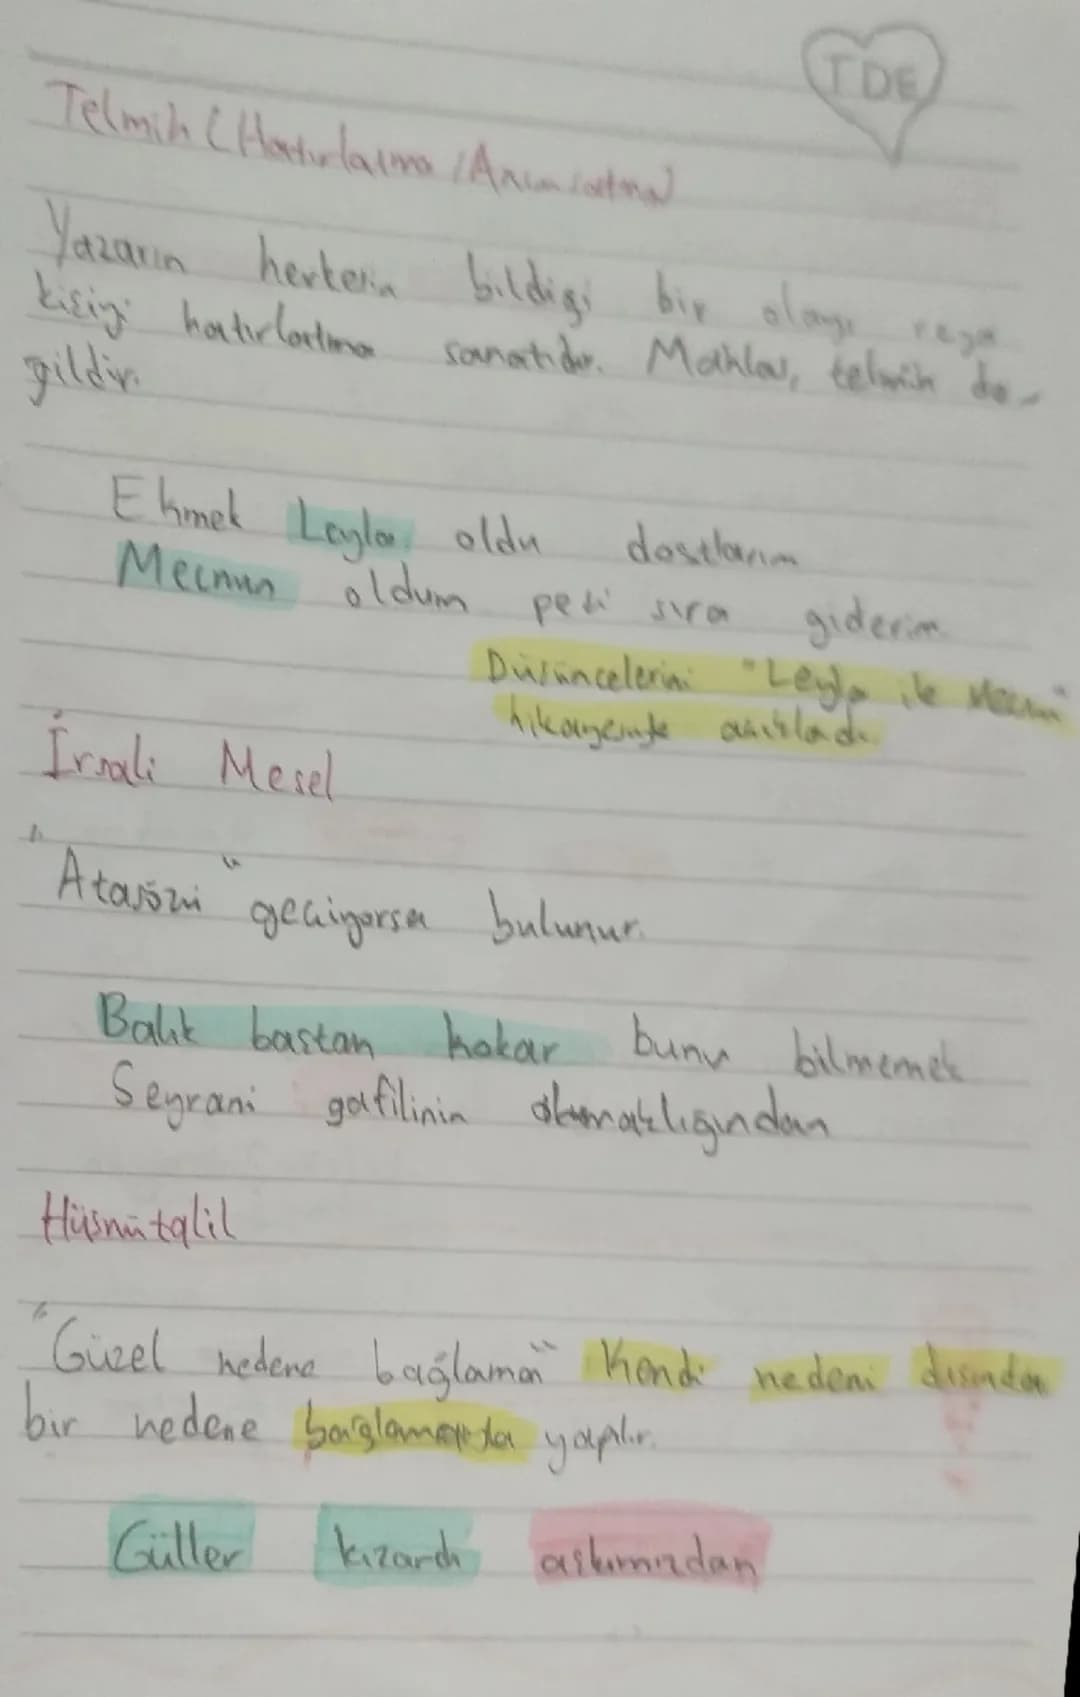 TDE
Telmih (Hatırlatma / Anımsatma)
Yazarın herkesin bildiği bir olayı veya
kişiyi hatırlatma sanatıdır. Mahlas, telmih de-
ğildir.
Ekmek Leyla oldu dostlarım
Mecnun oldum peşi sıra giderim
Düşüncelerini "Leyla ile Mecnun"
hikayesiyle
İrsali Mesel
"Atasözü" geçiyorsa bulunur.
Balık baştan kokar bunu bilmemek
Seyrani gafilinin ahmaklığından
Hüsnütalil
"Güzel nedene bağlama" Kendi nedeni dışında
bir nedene bağlamayla yapılır.
Güller kızardı aşkımızdan